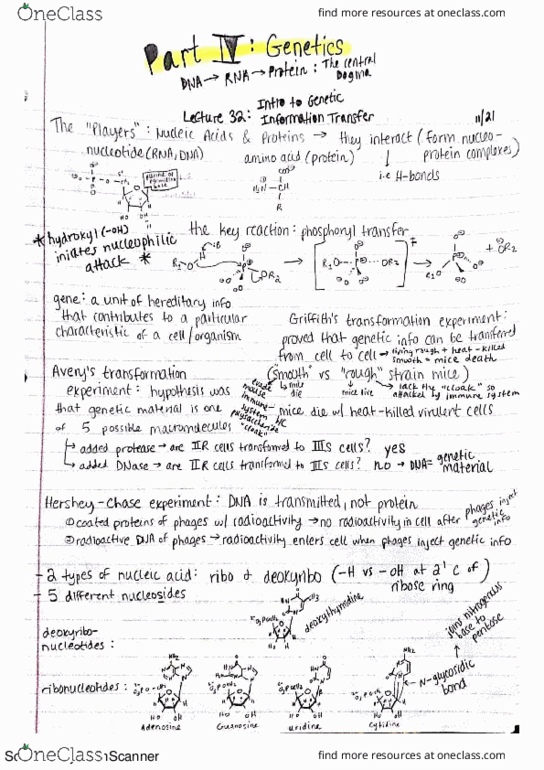 OneClass
find more resources at oneclass.com
Part IV: Genetics
DNA → RNA → Protein : The central Dogma
Intro to Genetic
Lecture 32: Information Transfer
11/21
The "Players": Nucleic Acids & Proteins → they interact (form nucleo-
protein complexes)
nucleotide (RNA, DNA)
amino acid (protein)
i.e H-bonds
*hydroxyl (-OH)
iniates nucleophilic
attack *
the key reaction: phosphoryl transfer
gene: a unit of hereditary info
that contributes to a particular
characteristic of a cell/organism
Griffith's transformation experiment:
proved that genetic info can be transfered
from cell to cell → living rough + heat-killed
smooth = mice death
("smooth" vs "rough" strain mice)
↳ mice die
mice live
↳ lack the "cloak" so
attacked by immune system
evade mouse immune system
polysaccharide "cloak"
mice die w/ heat-killed virulent cells
Avery's transformation
experiment: hypothesis was
that genetic material is one
of 5 possible macromolecules
↳ added protease → are IIR cells transformed to IIIS cells? yes
↳ added DNase → are IIR cells transformed to IIIS cells? no → DNA = genetic material
Hershey-Chase experiment: DNA is transmitted, not protein
① coated proteins of phages w/ radioactivity → no radioactivity in cell after phages inject genetic info
② radioactive DNA of phages → radioactivity enters cell when phages inject genetic info
- 2 types of nucleic acid: ribo & deoxyribo (-H vs -OH at 2' C of)
ribose ring
- 5 different nucleosides
deoxythymidine
deoxyribo-
nucleotides:
joins nitrogenous
base to
pentose
N-glycosidic
bond
ribonucleotides:
Adenosine
Guanosine
Uridine
Cytidine
OneClass
Scanner
find more resources at oneclass.com